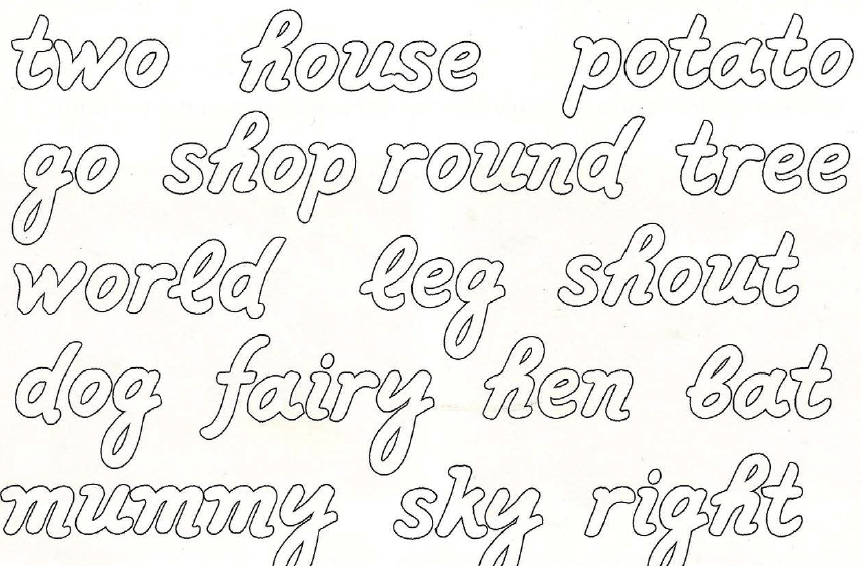 two house potato
go shop round tree
world leg shout
dog fairy hen bat
mummy sky right